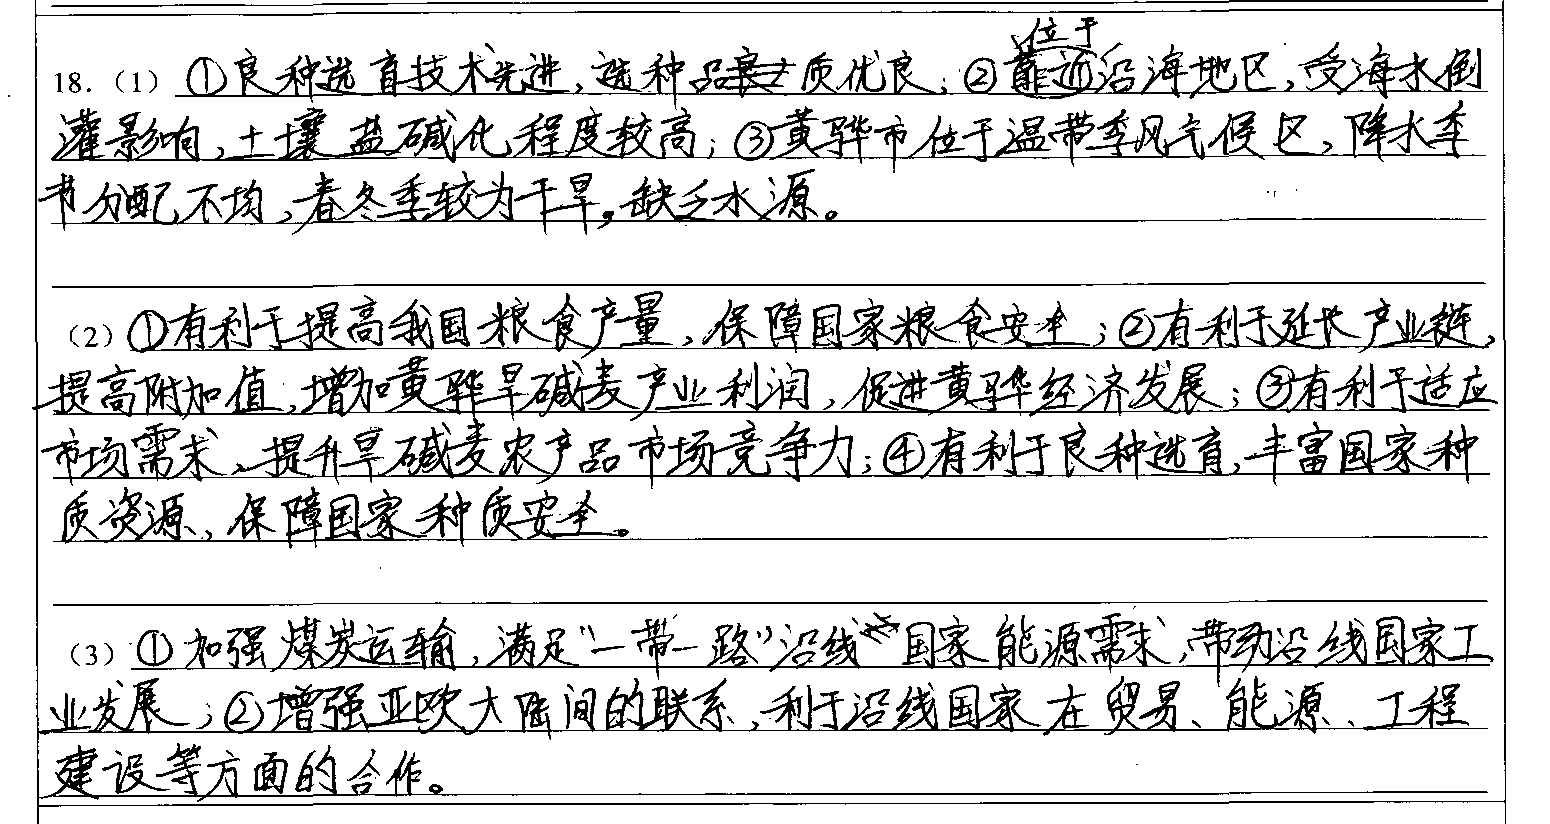 位于
18.（1）①良种选育技术先进，选种品质优良；②靠近沿海地区，受海水倒
灌影响，土壤盐碱化程度较高；③黄骅市位于温带季风气候区，降水季
节分配不均，春冬季较为干旱，缺乏水源。
（2）①有利于提高我国粮食产量，保障国家粮食安全；②有利于延长产业链，
提高附加值，增加黄骅旱碱麦产业利润，促进黄骅经济发展；③有利于适应
市场需求，提升旱碱麦农产品市场竞争力；④有利于良种选育，丰富国家种
质资源，保障国家种质安全。
（3）①加强煤炭运输，满足“一带一路”沿线国家能源需求，带动沿线国家工
业发展；②增强亚欧大陆间的联系，利于沿线国家在贸易、能源、工程
建设等方面的合作。